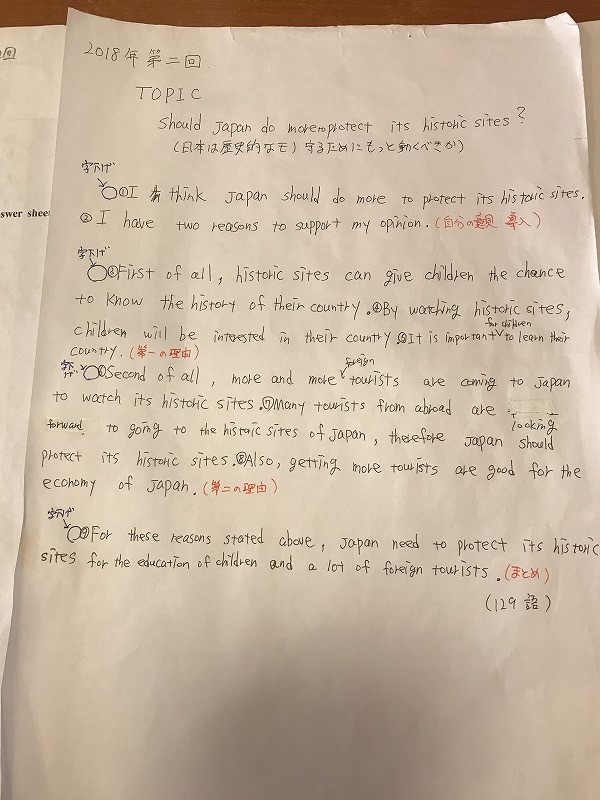 2018年 第二回
TOPIC
Should Japan do more to protect its historic sites?
(日本は歴史的なモノ守るためにもっと動くべきか)
字下げ
①I think Japan should do more to protect its historic sites.
swer shee
②I have two reasons to support my opinion. (自分の意見 導入)
字下げ
③First of all, historic sites can give children the chance
to know the history of their country. ④By watching historic sites,
children will be interested in their country. ⑤It is important for children to learn their
country. (第一の理由)
字下げ
⑥Second of all, more and more foreign tourists are coming to Japan
to watch its historic sites. ⑦Many tourists from abroad are looking
forward to going to the historic sites of Japan, therefore Japan should
protect its historic sites. ⑧Also, getting more tourists are good for the
economy of Japan. (第二の理由)
字下げ
⑨For these reasons stated above, Japan need to protect its historic
sites for the education of children and a lot of foreign tourists. (まとめ)
(129 語)